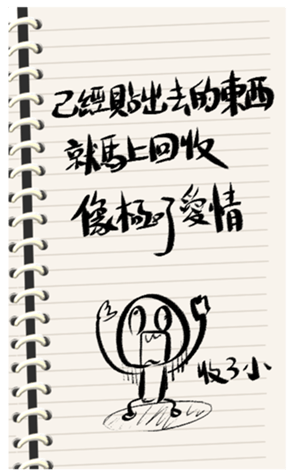 已經貼出去的東西
就馬上回收
像極了愛情
收了小